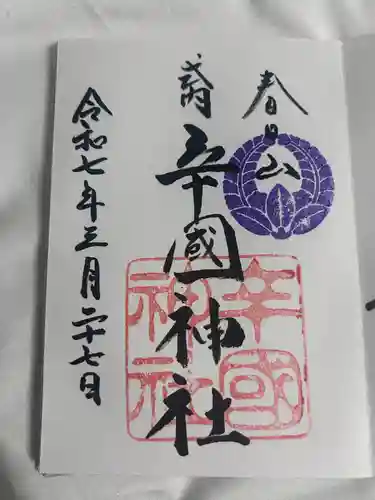 春日山
式内
辛國神社
令和七年三月二十七日
辛國
神社